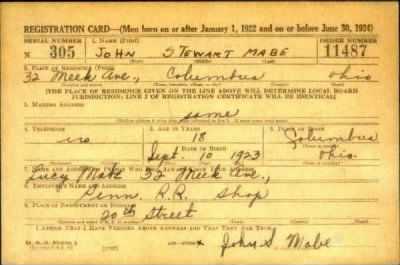 REGISTRATION CARD—(Men born on or after January 1, 1922 and on or before June 30, 1924)
SERIAL NUMBER 1. NAME (Print) ORDER NUMBER
N 305 JOHN STEWART MABE 11487
(First) (Middle) (Last)
2. PLACE OF RESIDENCE (Print)
32 Meek Ave., Columbus Ohio
[THE PLACE OF RESIDENCE GIVEN ON THE LINE ABOVE WILL DETERMINE LOCAL BOARD
JURISDICTION; LINE 2 OF REGISTRATION CERTIFICATE WILL BE IDENTICAL]
3. MAILING ADDRESS
same
4. TELEPHONE 5. AGE IN YEARS 6. PLACE OF BIRTH
no 18 Columbus
DATE OF BIRTH
Sept. 10 1923 Ohio.
7. NAME AND ADDRESS OF PERSON WHO WILL ALWAYS KNOW YOUR ADDRESS
Lucy Mabe 32 Meek Ave.,
8. EMPLOYER'S NAME AND ADDRESS
Penn. R.R. Shop
9. PLACE OF EMPLOYMENT OR BUSINESS
20th Street
I AFFIRM THAT I HAVE VERIFIED ABOVE ANSWERS AND THAT THEY ARE TRUE.
D. S. S. Form 1
(over)
John S. Mabe